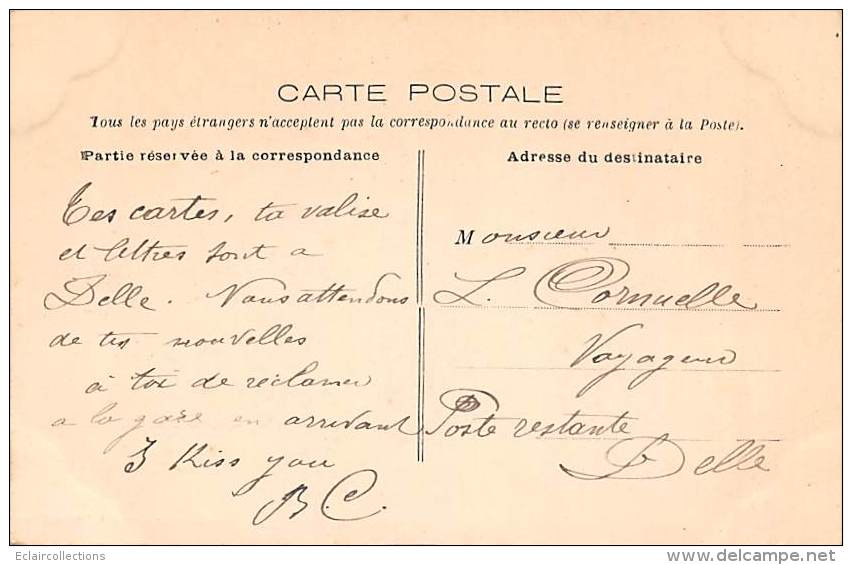 CARTE POSTALE
Tous les pays étrangers n'acceptent pas la correspondance au recto (se renseigner à la Poste).
Partie réservée à la correspondance
Tes cartes, ta valise
et lettres sont a
Delle. Nous attendons
de tes nouvelles
à toi de réclamer
a la gare en arrivant
I Kiss you
B. C.
Adresse du destinataire
Monsieur
L. Cornuelle
Voyageur
Poste restante
Delle
Eclaircollections
www.delcampe.net